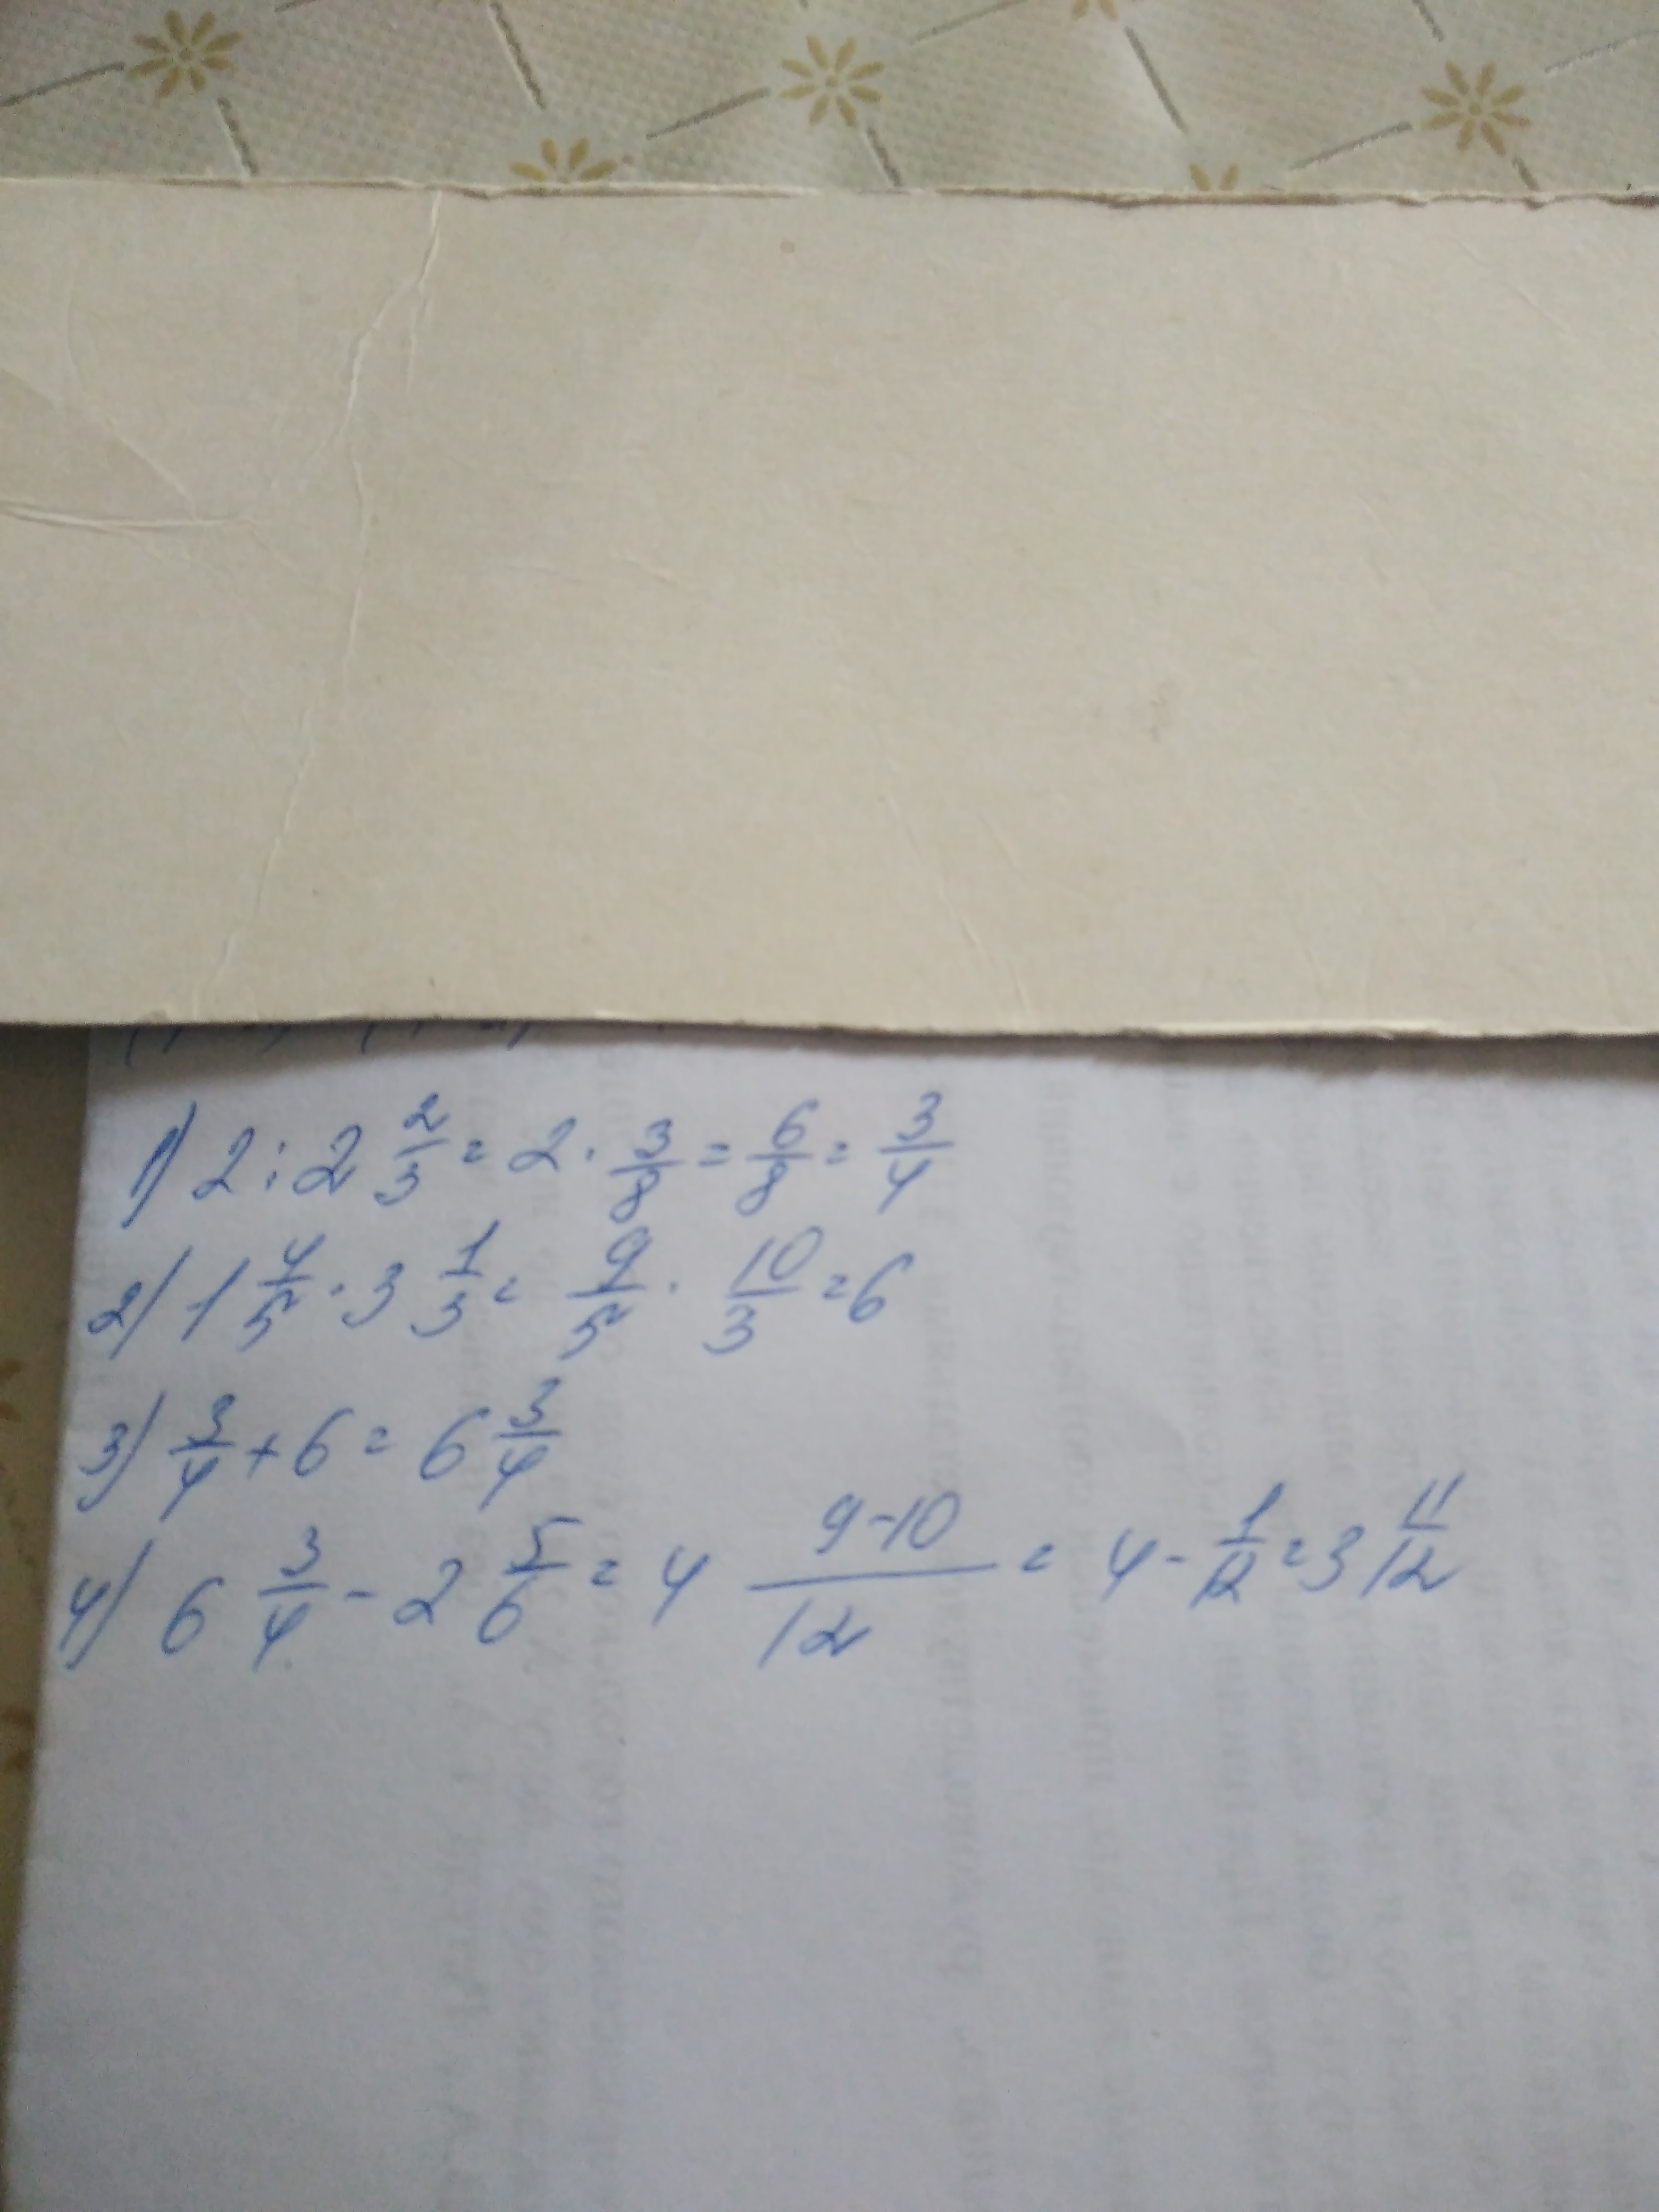 1) 2 : 2 2/3 = 2 · 3/8 = 6/8 = 3/4
2) 1 4/5 · 3 1/3 = 9/5 · 10/3 = 6
3) 3/4 + 6 = 6 3/4
4) 6 3/4 - 2 5/6 = 4 (9-10)/12 = 4 - 1/12 = 3 11/12